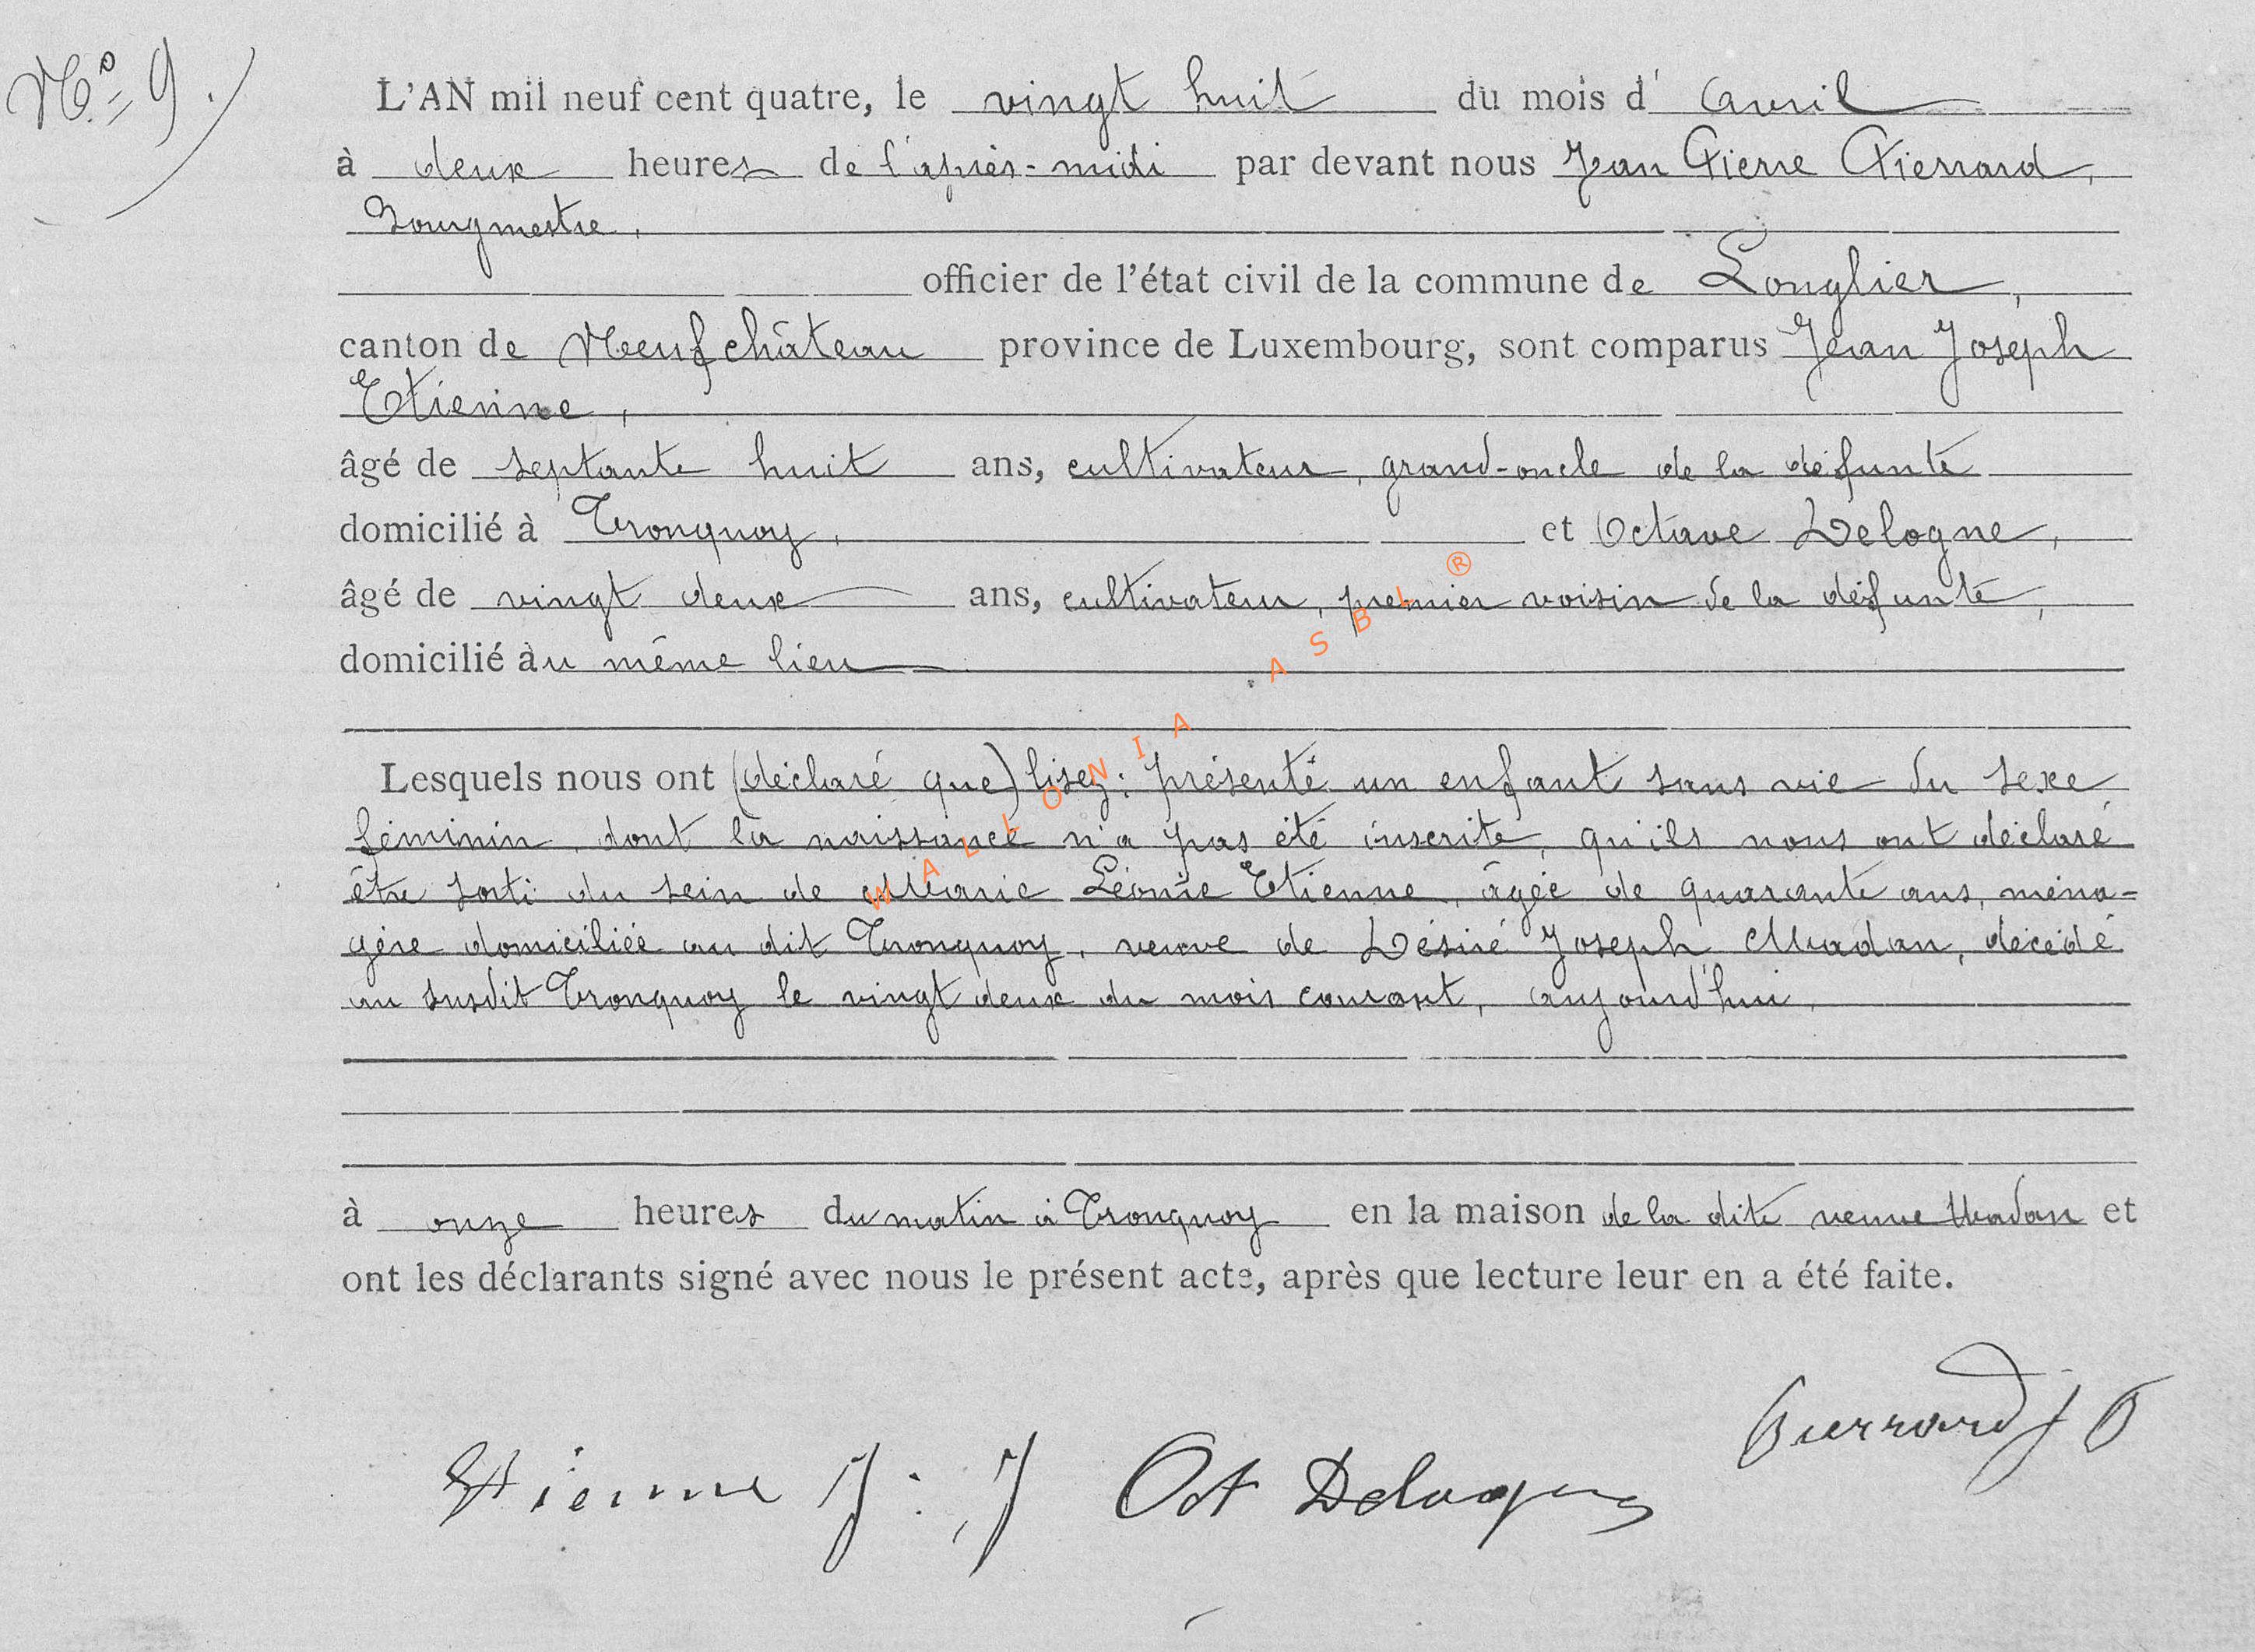 N.º 9.
L'AN mil neuf cent quatre, le vingt huit du mois d'avril
à deux heures de l'après-midi par devant nous Jean Pierre Pierrard,
Bourgmestre,
officier de l'état civil de la commune de Longlier,
canton de Neufchâteau province de Luxembourg, sont comparus Jean Joseph
Etienne,
âgé de septante huit ans, cultivateur, grand-oncle de la défunte
domicilié à Tronquoy, et Octave Delogne,
âgé de vingt deux ans, cultivateur, premier voisin de la défunte,
domicilié au même lieu
Lesquels nous ont (déclaré que) lisez: présenté un enfant sans vie du sexe
féminin, dont la naissance n'a pas été inscrite, qu'ils nous ont déclaré
être sorti du sein de Marie Léonie Etienne, âgée de quarante ans, ména-
gère domiciliée au dit Tronquoy, veuve de Désiré Joseph Madan, décédé
au susdit Tronquoy le vingt deux du mois courant, aujourd'hui,
à onze heures du matin à Tronquoy en la maison de la dite veuve Madan et
ont les déclarants signé avec nous le présent acte, après que lecture leur en a été faite.
Pierrard J P
Etienne J: J Oct Delogne
WALLONIA ASBL ®